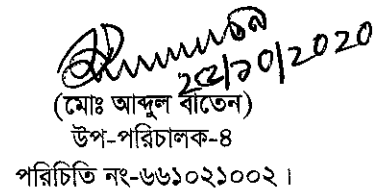 ২৫/১০/২০২০
(মোঃ আব্দুল বাতেন)
উপ-পরিচালক-৪
পরিচিতি নং-৬৬১০২১০০২।